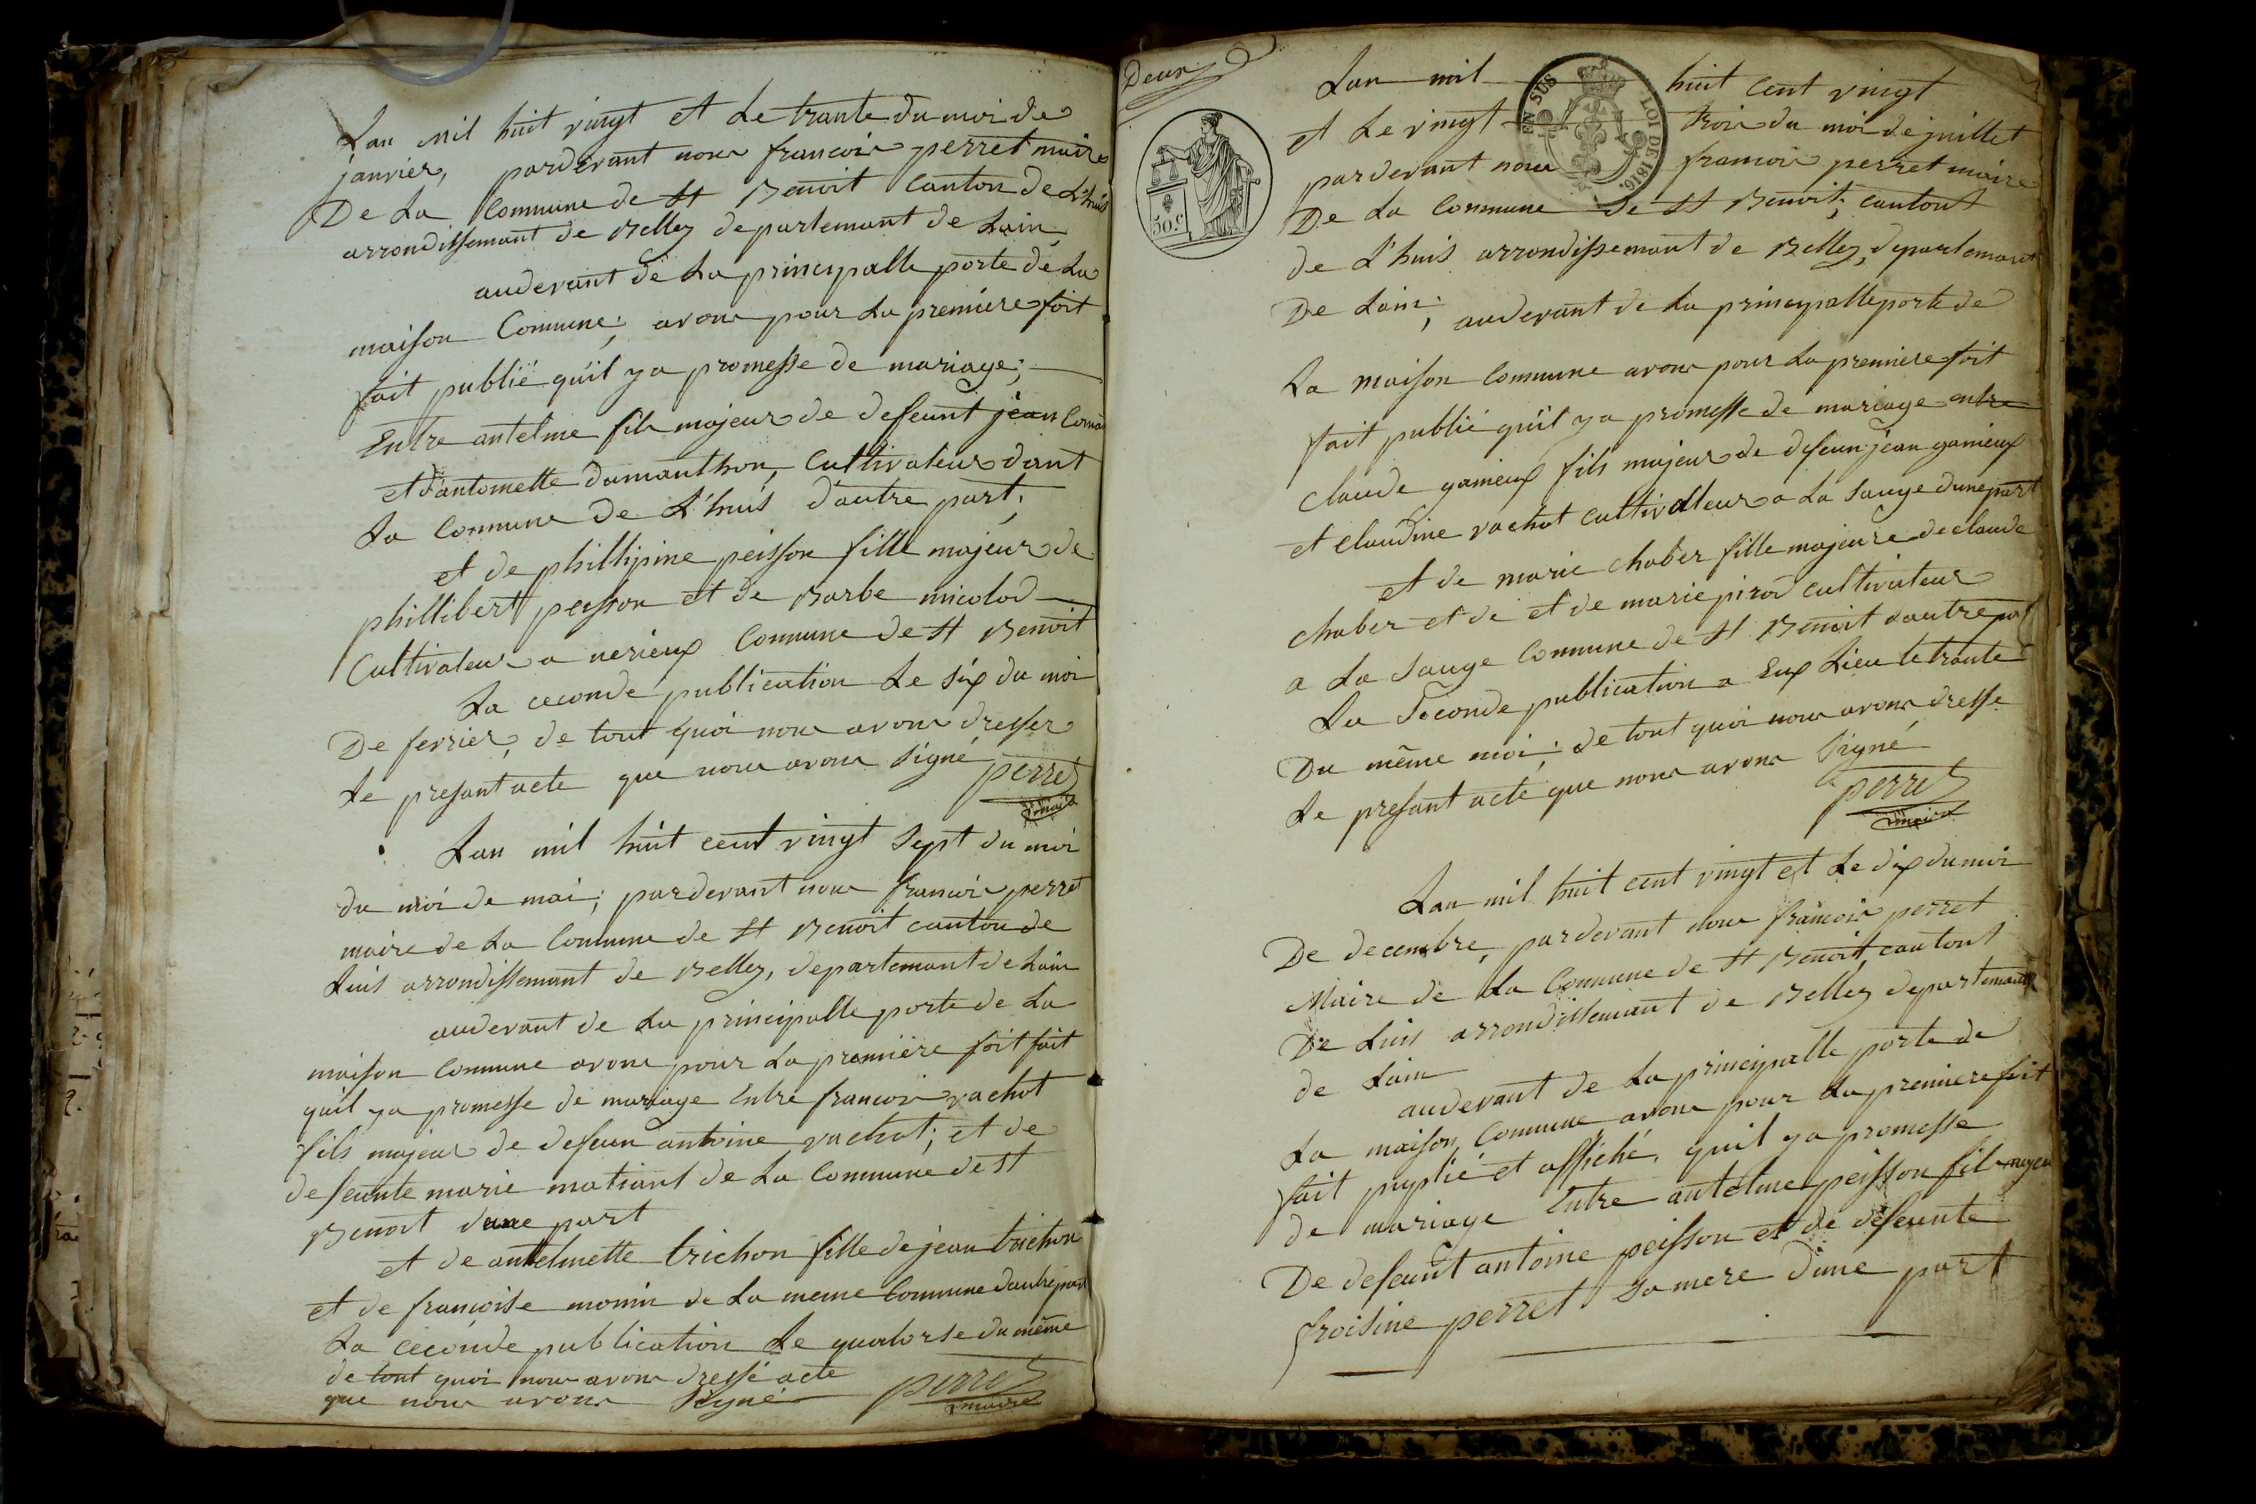 Lan mil huit vingt et Le trante du moi de
janvier, pardevant nous francois perret maire
De La Commune de St Benoit Canton de L'huis
arrondissemant de Belley departemant de Lain
audevant de La principalle porte de La
maison Commune; avons pour La premiere foit
fait publié quil ya promesse de mariage;
Entre antelme fils majeur de defeunt jean
et d'antoinette dumanthon, Cultivateur dant
La Commune de L'huis d'autre part;
et de phillipine peisson fille majeur de
phillibert peisson et de Barbe micolod
Cultivateur a nerieux Commune de St Benoit
La ceconde publication Le six du moi
De fevrier, de tout quoi nous avons dresser
Le presant acte que nous avons signé perret
maire
Lan mil huit cent vingt sept du moi
du moi de mai; pardevant nous francois perret
maire de La Commune de St Benoit canton de
Luis arrondissemant de Belley, departemant de Lain
audevant de La principalle porte de La
maison Commune avons pour La premiere foit fait
quil ya promesse de mariage Entre francois vachot
fils majeur de defeun antoine vachot; et de
defeunte marie matiant de La Commune de St
Benoit dune part
et de antelmette trichon fille de jean trichon
et de francoise monin de La meme Commune dautre part
La ceconde publication Le quatorse du même
de tout quoi nous avons dressé acte
que nous avons Signé perret
maire
Deux
50 c.
EN SUS
LOI DE 1816.
Lan mil huit cent vingt
et Le vingt trois du moi de juillet
pardevant nous francois perret maire
De La Commune de St Benoit; cantont
de L'huis arrondissemant de Belley, departemant
De Lain; audevant de La principalle porte de
La maison Commune avons pour La premiere foit
fait publié quil ya promesse de mariage entre
Claude ganieux fils majeur de defeun jean ganieux
et claudine vachot cultivateur a La Sauge dune part
et de marie chaber fille majeure de claude
chaber et de et de marie pirod cultivateur
a La Sauge Commune de St Benoit dautre part
La Seconde publication a Eux Lieu le trante
Du même moi; de tout quoi nous avons dresse
Le presant acte que nous avons Signé
perret
maire
Lan mil huit cent vingt et Le dix du moi
De decembre, pardevant nous francois perret
Maire de La Commune de St Benoit, cantont
De Luis arrondissemant de Belley departemant
de Lain
audevant de La principalle porte de
La maison Commune avons pour La premiere foit
fait puplié et affiché, quil ya promesse
de mariage Entre antelme peisson fils majeur
De defeunt antoine peisson et de defeunte
froisine perret Sa mere d'une part